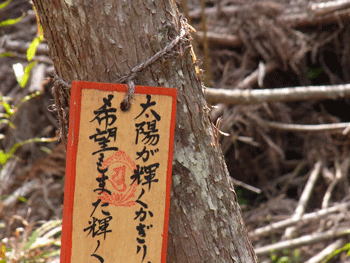 太陽が輝くかぎり
希望もまた輝く